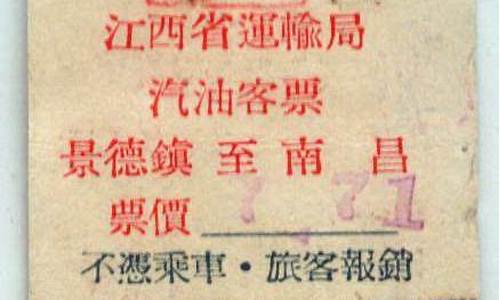 江西省運輸局
汽油客票
景德鎮 至 南 昌
票價 7.71
不憑乘車・旅客報銷